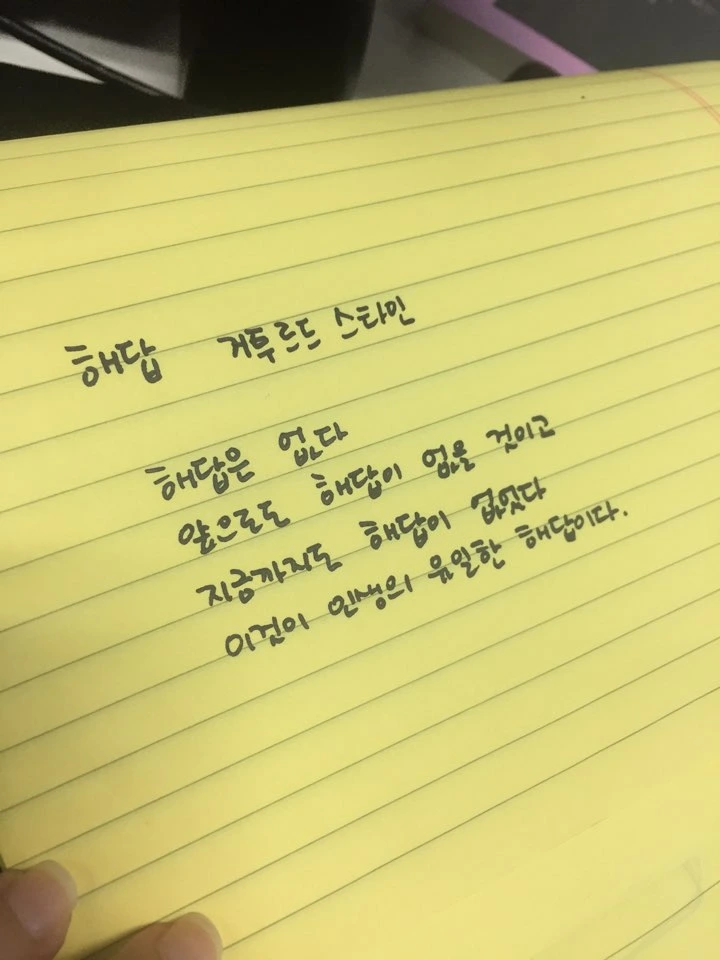 해답 거투르드 스타인
해답은 없다
앞으로도 해답이 없을 것이고
지금까지도 해답이 없었다
이것이 인생의 유일한 해답이다.